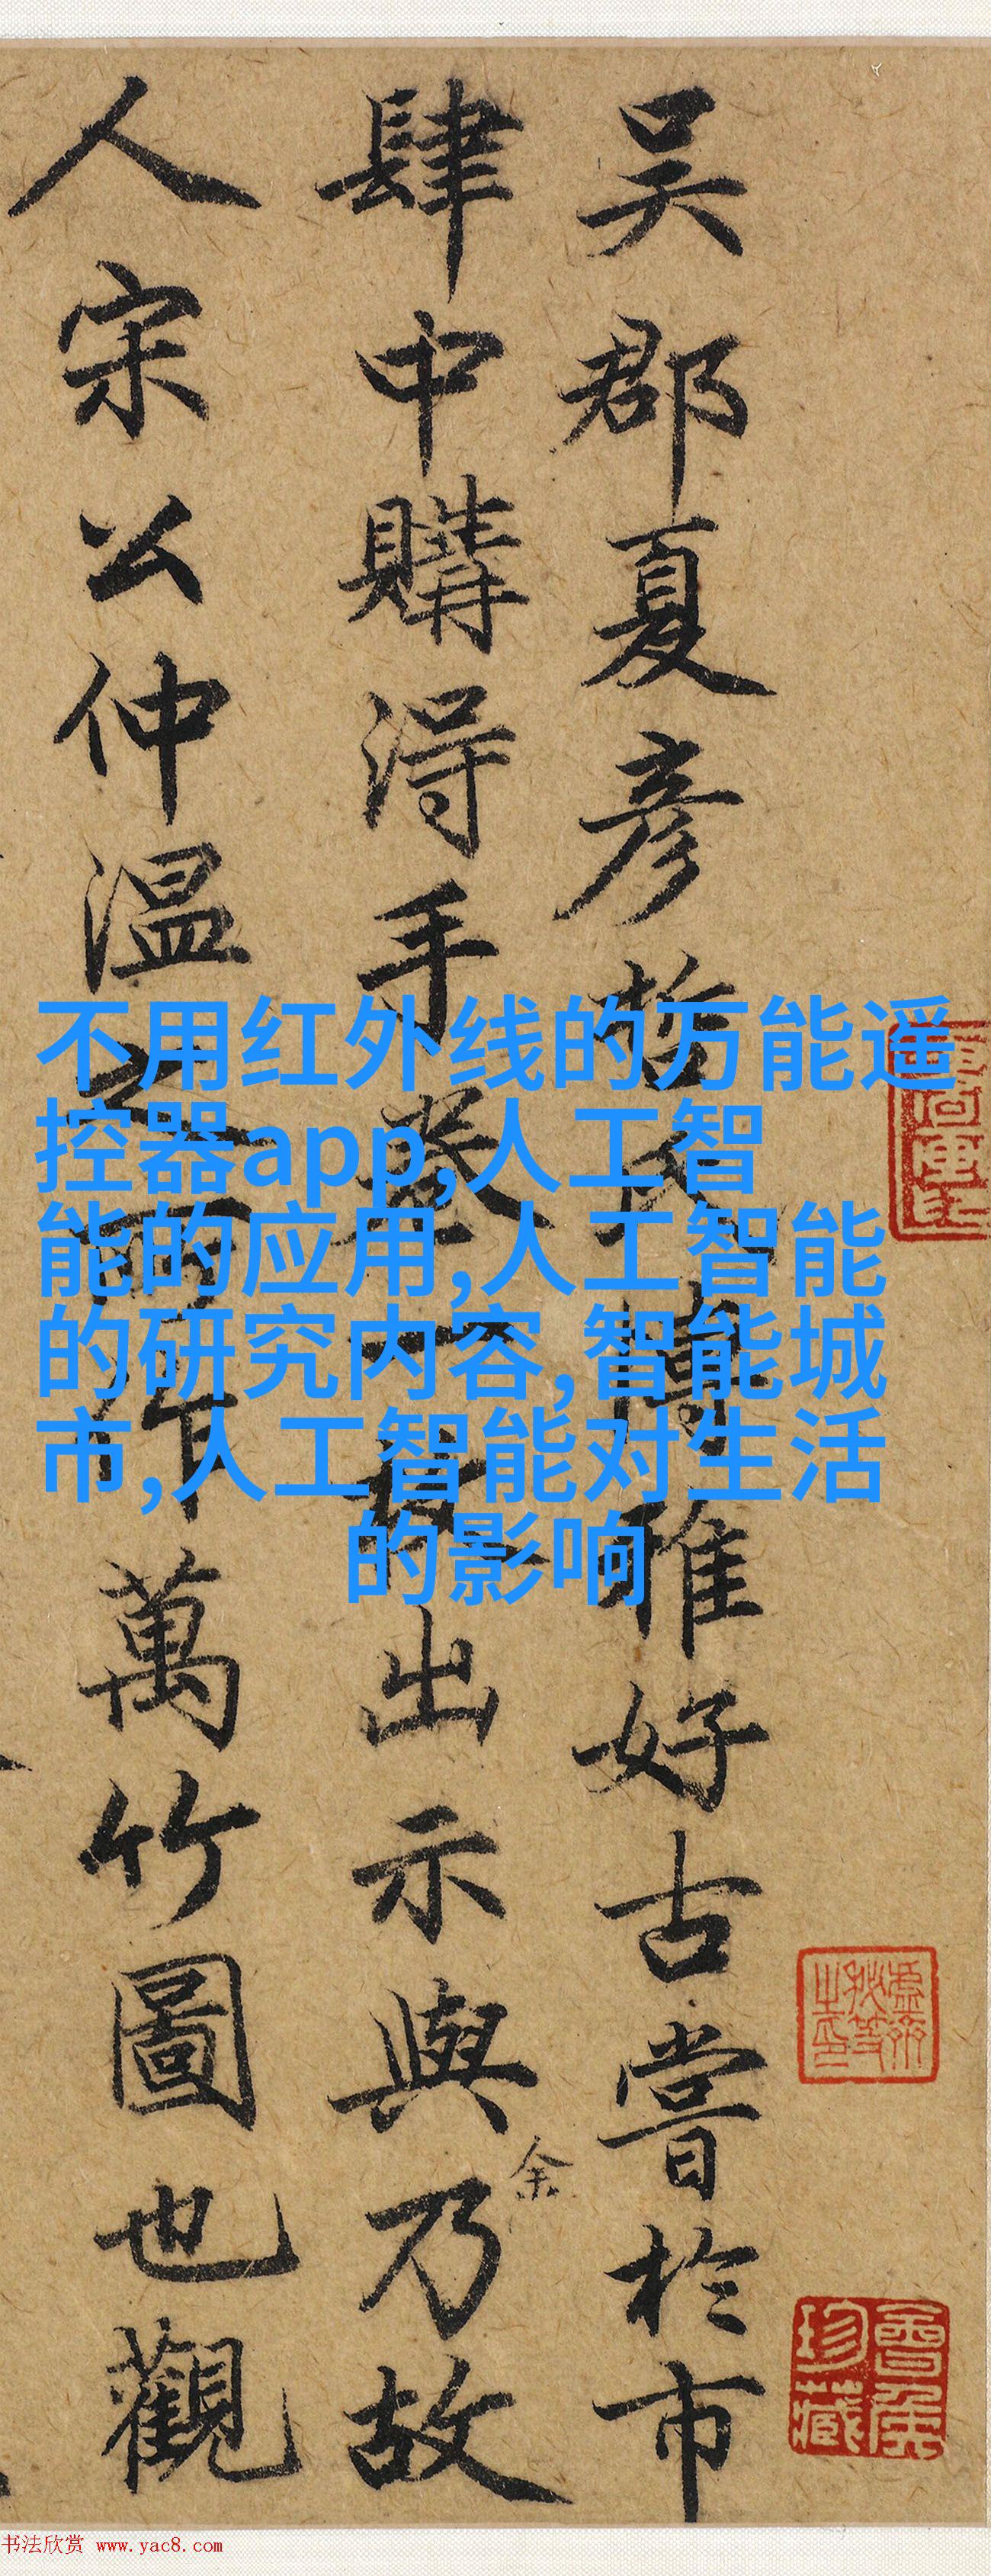 吴郡夏彦哲博雅好古嘗於市
肆中購得手卷一
出示與乃故
余
人宋公仲温之所作萬竹圖也觀
不用红外线的万能遥
控器app,人工智
能的应用,人工智能
的研究内容,智能城
市,人工智能对生活
的影响
珍藏
书法欣赏 www.yac8.com